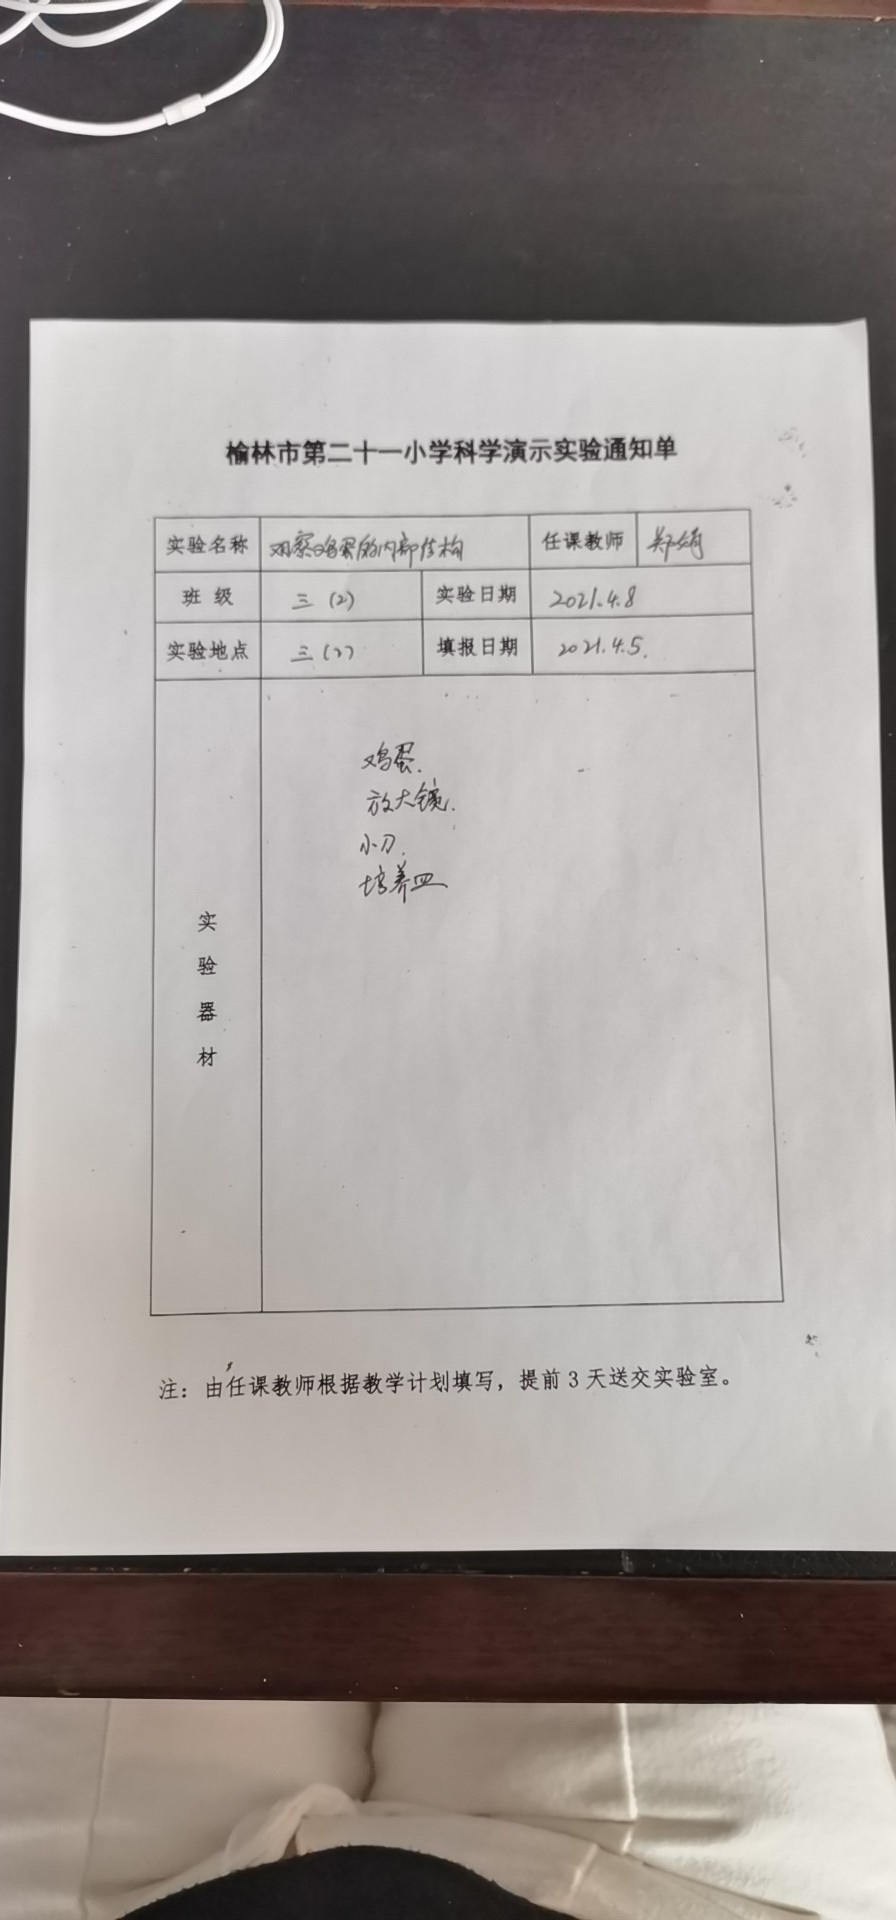 榆林市第二十一小学科学演示实验通知单
实验名称 观察鸡蛋的内部结构 任课教师 郑婧
班级 三(2) 实验日期 2021.4.8
实验地点 三(2) 填报日期 2021.4.5.
实验器材
鸡蛋.
放大镜.
小刀.
培养皿
注：由任课教师根据教学计划填写，提前3天送交实验室。